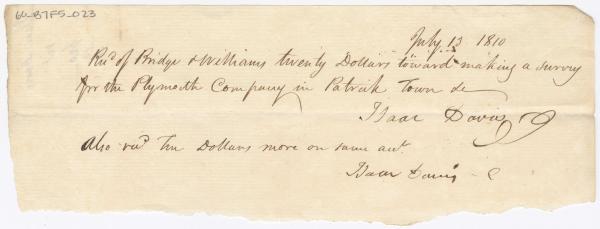 60-B7F5-023
July 13 1810
Recd of Bridge & Williams twenty Dollars toward making a survey
for the Plymouth Company in Patrick Town &c
Isaac Davis
Also recd Ten Dollars more on same acct.
Isaac Davis